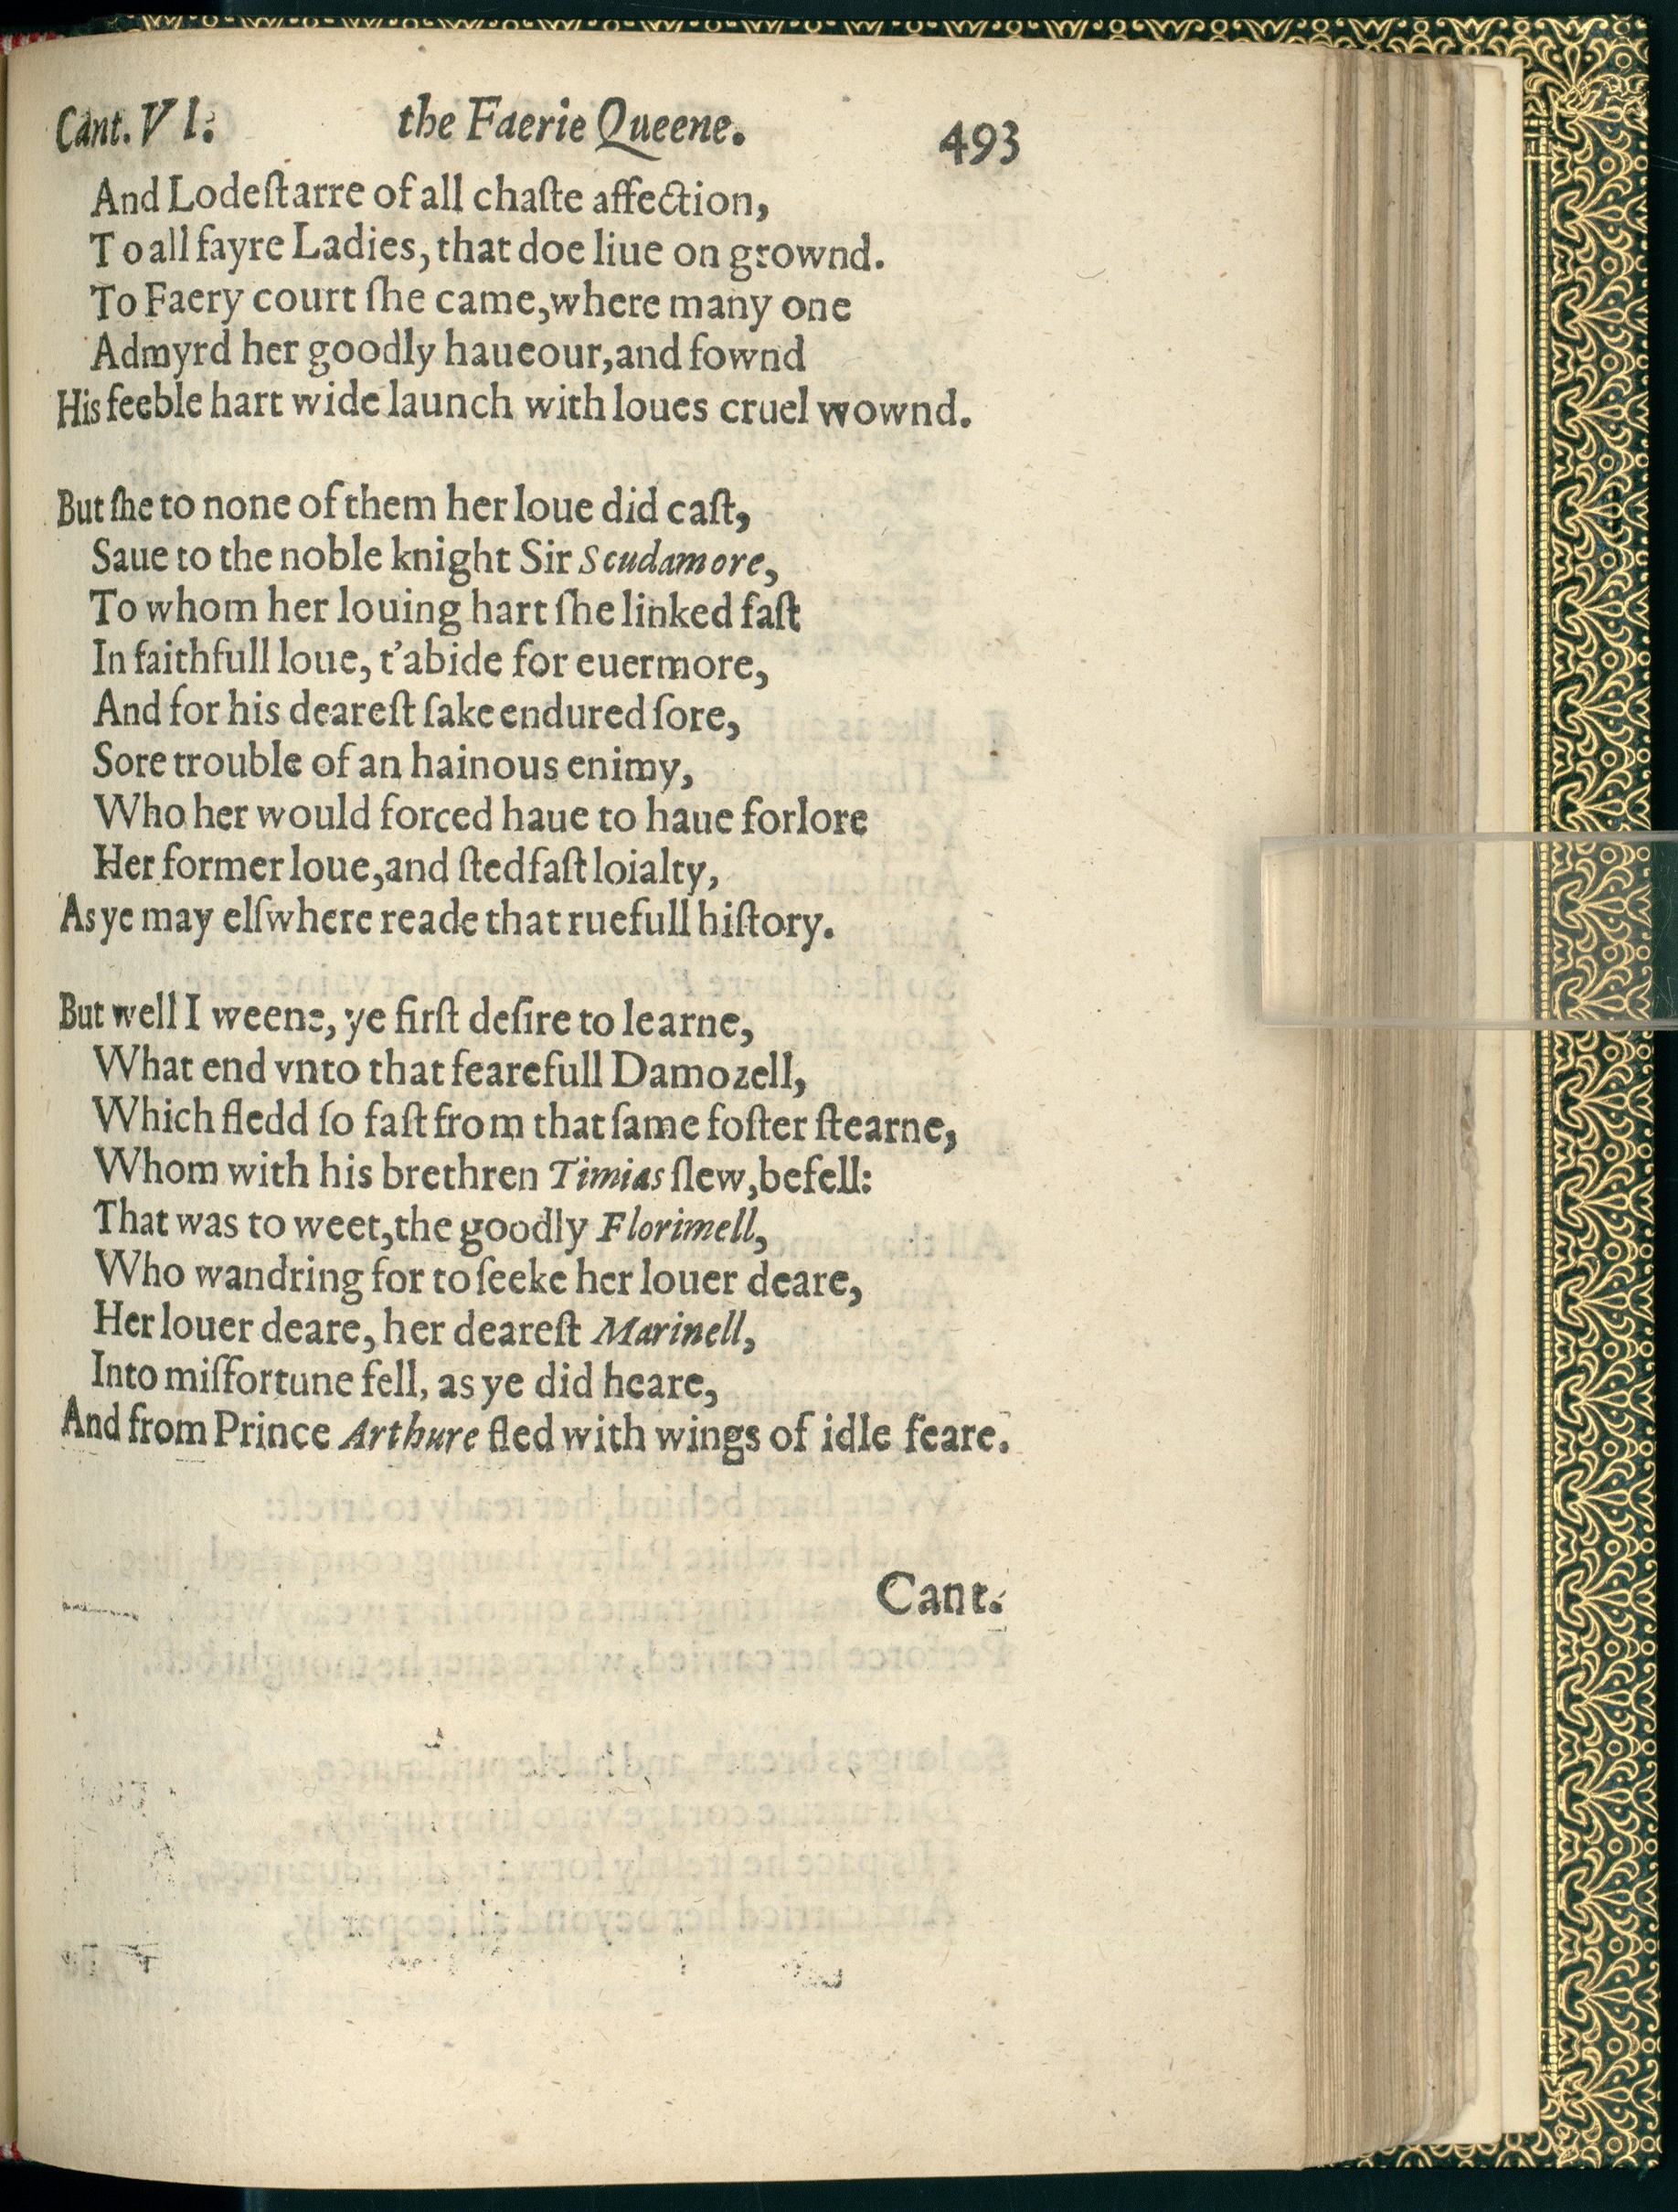 Cant. VI. the Faerie Queene. 493
And Lodeſtarre of all chaſte affection,
To all fayre Ladies, that doe liue on grownd.
To Faery court ſhe came, where many one
Admyrd her goodly haueour, and fownd
His feeble hart wide launch with loues cruel wownd.
But ſhe to none of them her loue did caſt,
Saue to the noble knight Sir Scudamore,
To whom her louing hart ſhe linked faſt
In faithfull loue, t'abide for euermore,
And for his deareſt ſake endured ſore,
Sore trouble of an hainous enimy,
Who her would forced haue to haue forlore
Her former loue, and ſtedfaſt loialty,
As ye may elſwhere reade that ruefull hiſtory.
But well I weene, ye firſt deſire to learne,
What end vnto that fearefull Damozell,
Which fledd ſo faſt from that ſame foſter ſtearne,
Whom with his brethren Timias ſlew, befell:
That was to weet, the goodly Florimell,
Who wandring for to ſeeke her louer deare,
Her louer deare, her deareſt Marinell,
Into miſfortune fell, as ye did heare,
And from Prince Arthure fled with wings of idle feare.
Cant.